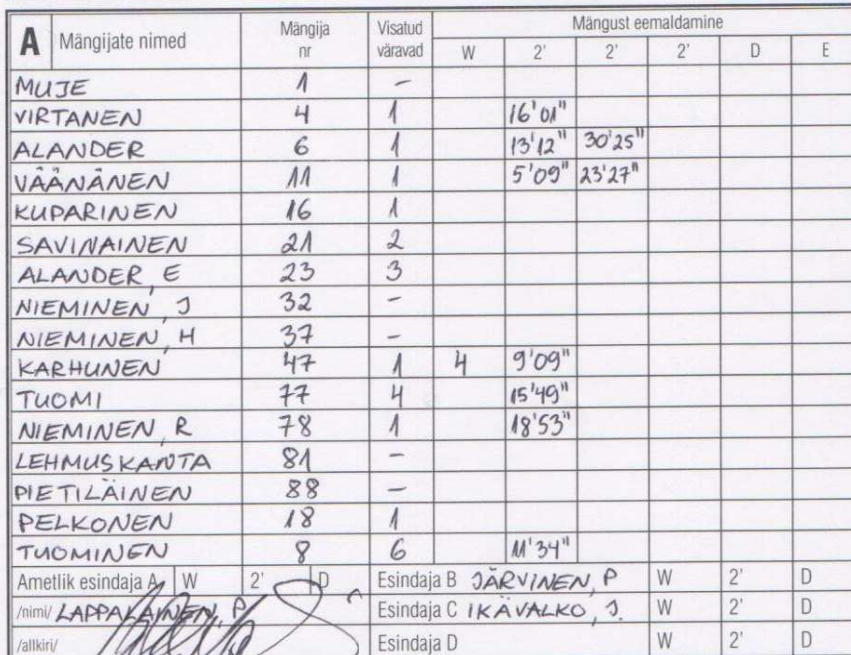 A Mängijate nimed Mängija nr Visatud väravad Mängust eemaldamine
W 2' 2' 2' D E
MUJE 1 -
VIRTANEN 4 1 16'01"
ALANDER 6 1 13'12" 30'25"
VÄÄNÄNEN 11 1 5'09" 23'27"
KUPARINEN 16 1
SAVINAINEN 21 2
ALANDER, E 23 3
NIEMINEN, J 32 -
NIEMINEN, H 37 -
KARHUNEN 47 1 4 9'09"
TUOMI 77 4 15'49"
NIEMINEN, R 78 1 18'53"
LEHMUSKANTA 81 -
PIETILÄINEN 88 -
PELKONEN 18 1
TUOMINEN 8 6 11'34"
Ametlik esindaja A W 2' D Esindaja B JÄRVINEN, P W 2' D
/nimi/ LAPPALAINEN, P Esindaja C IKÄVALKO, J. W 2' D
/allkiri/ Esindaja D W 2' D